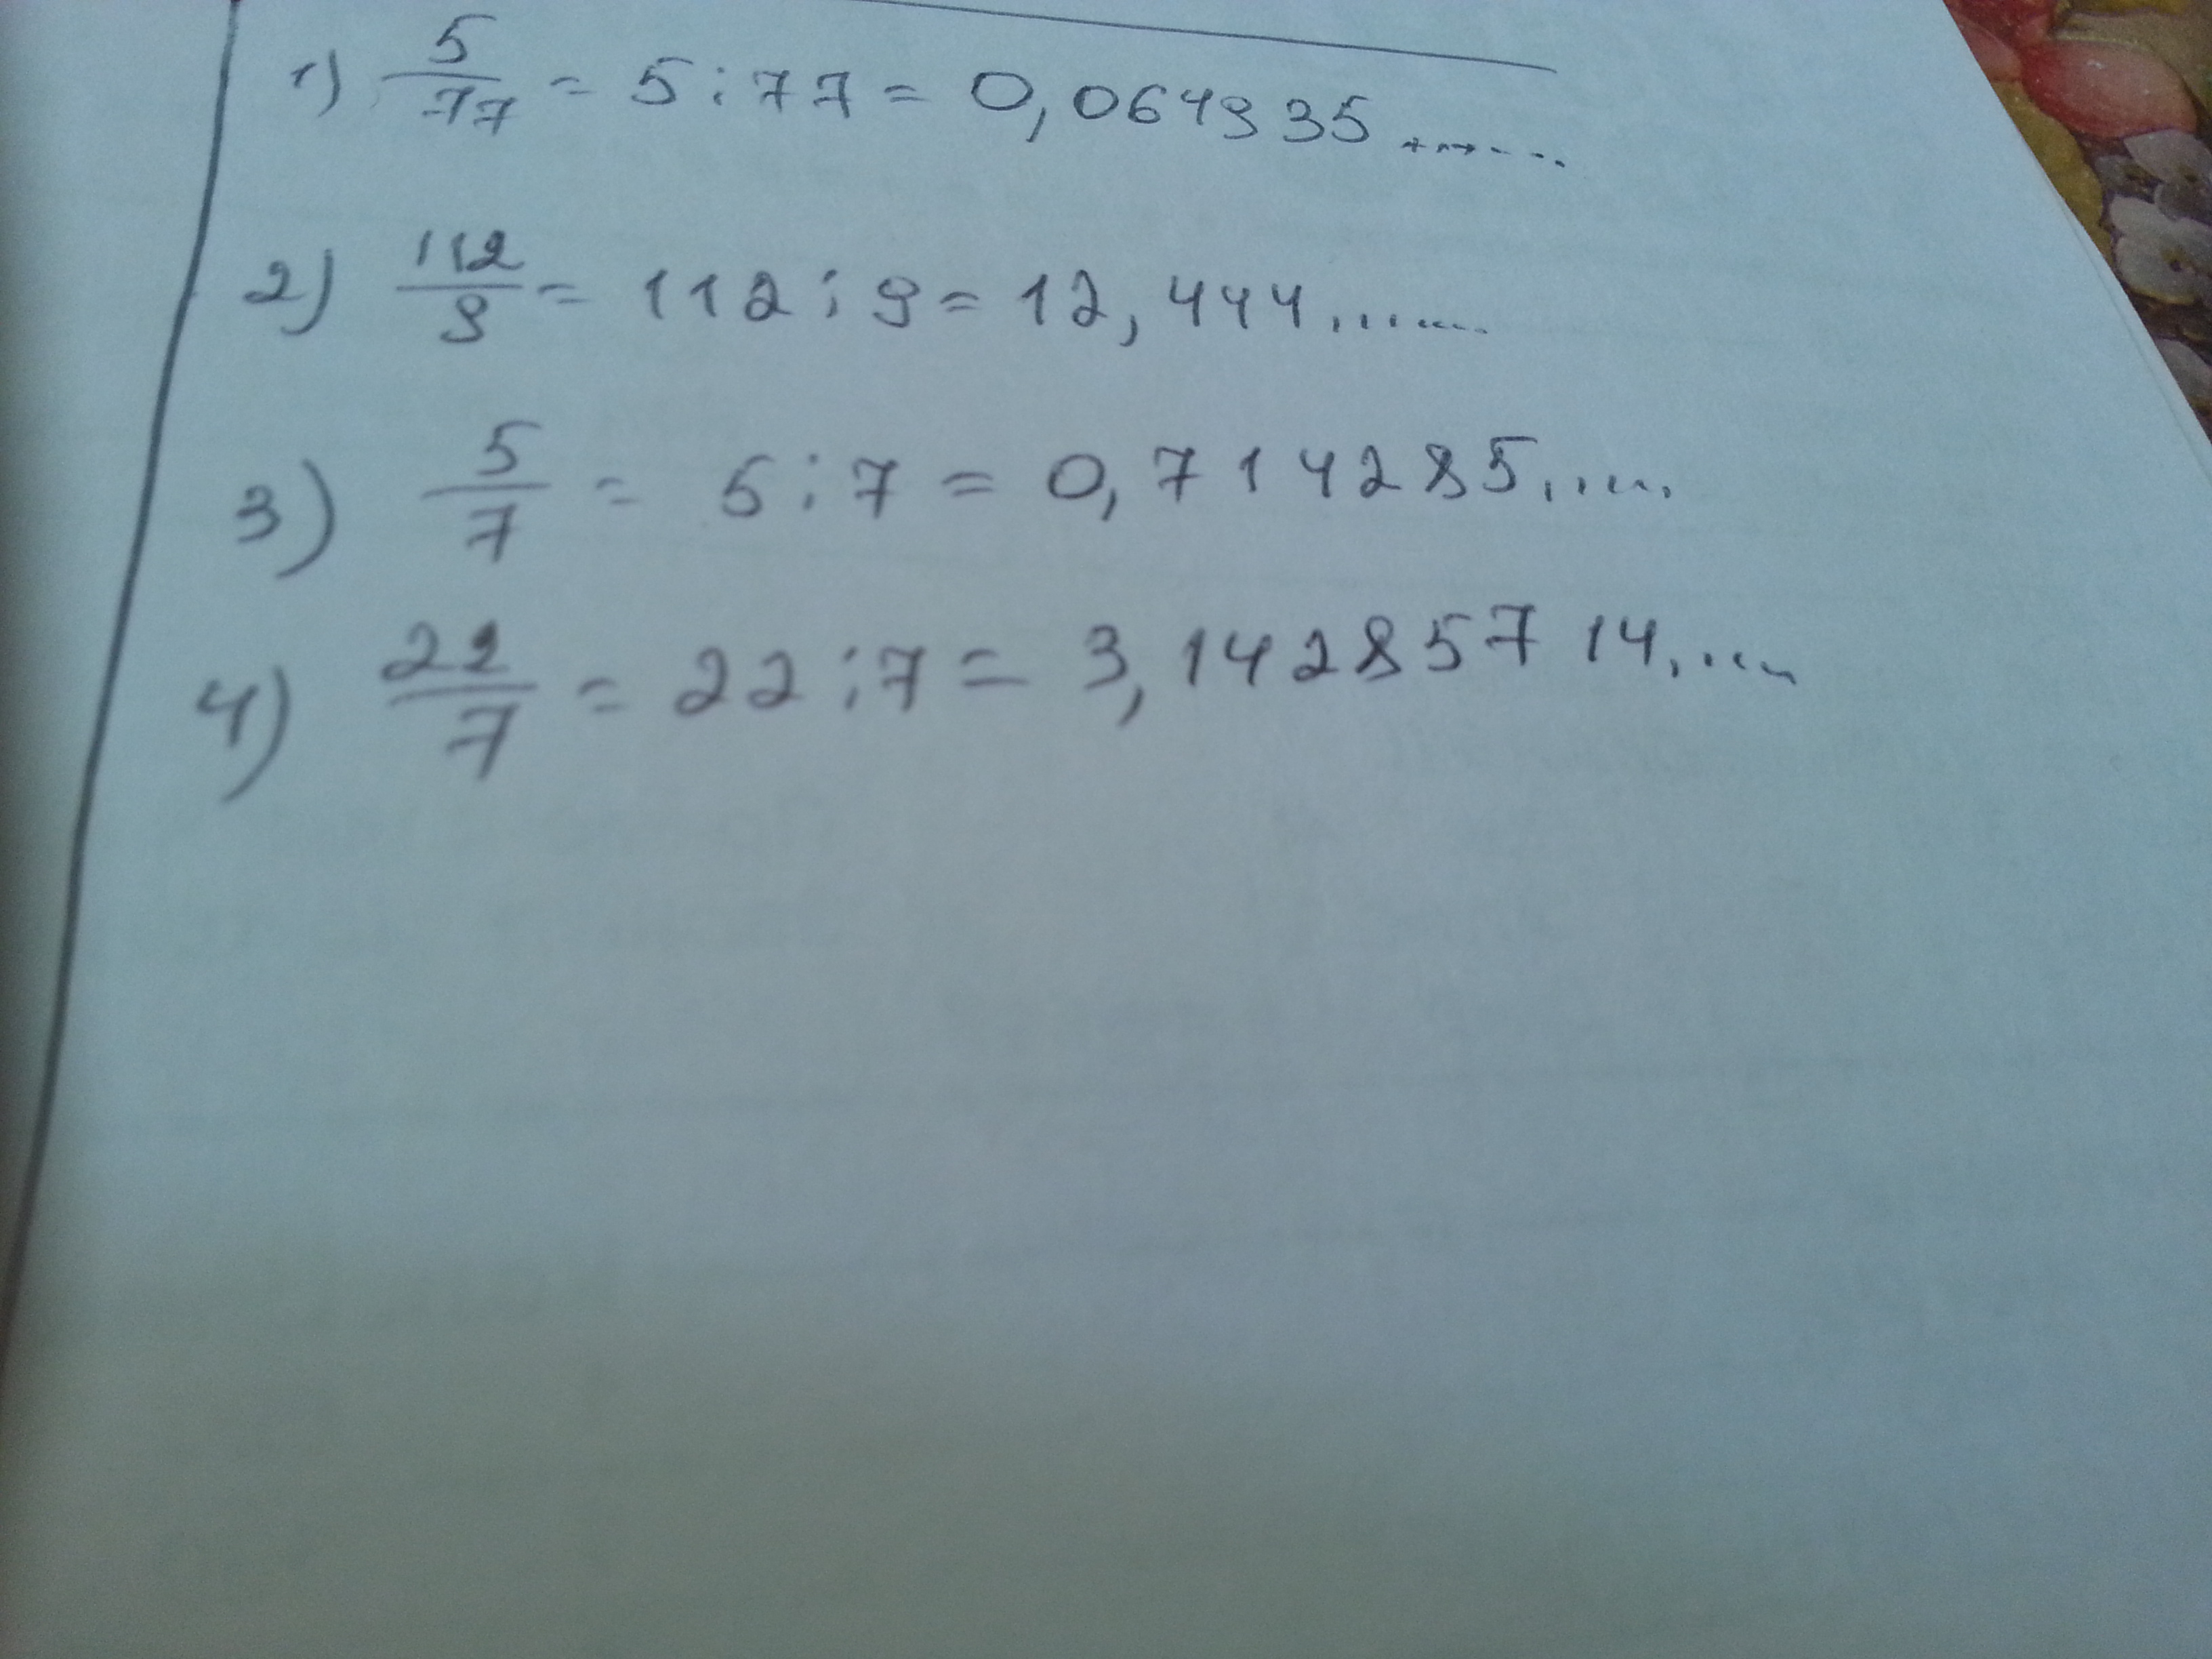 1) 5/77 = 5:77 = 0,064935.......
2) 112/9 = 112:9 = 12,444.......
3) 5/7 = 5:7 = 0,714285.....
4) 22/7 = 22:7 = 3,142857 14.....